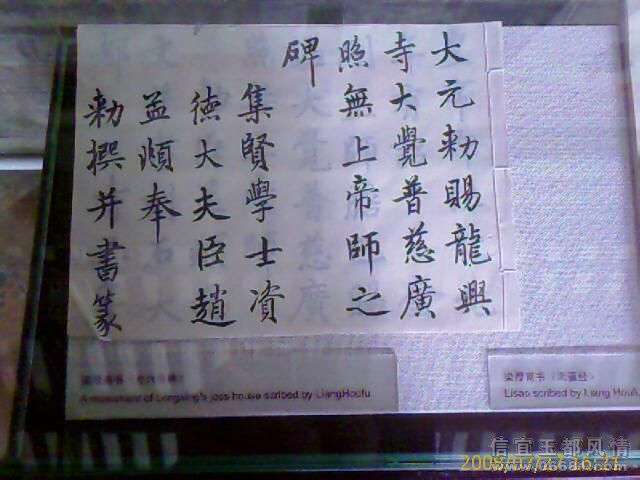 大元勅賜龍興
寺大覺普慈廣
照無上帝師之
碑
集賢學士資
德大夫臣趙
孟頫奉
勅撰并書篆
A monument of Longxing's joss house scribed by LiangHoufu
梁厚甫书《离骚经》
Lisao scribed by Liang Houfu
信宜玉都风情
16:21